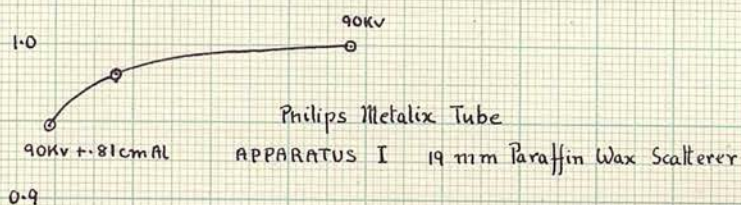 90Kv
1.0
Philips Metalix Tube
90Kv +.81cm Al
APPARATUS I 19 mm Paraffin Wax Scatterer
0.9